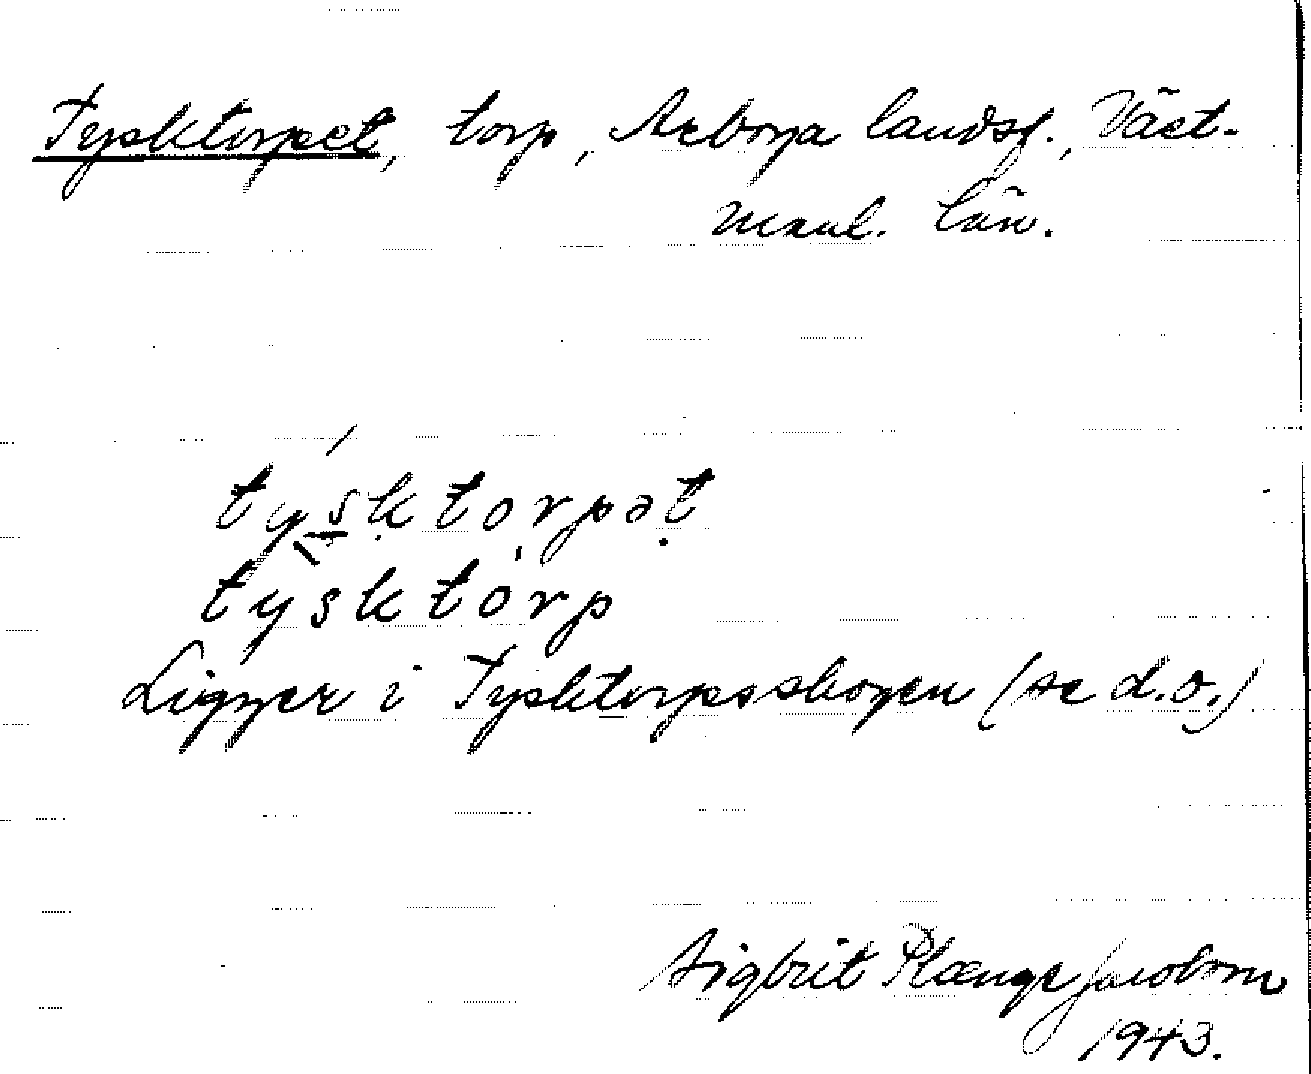 Tysktorpet, torp, Arboga landsf., Väst-
manl. län.
tysktorpət
tysktorp
Ligger i Tysktorpsskogen (se d.o.)
Sigbrit Plænge Jacobson
1943.